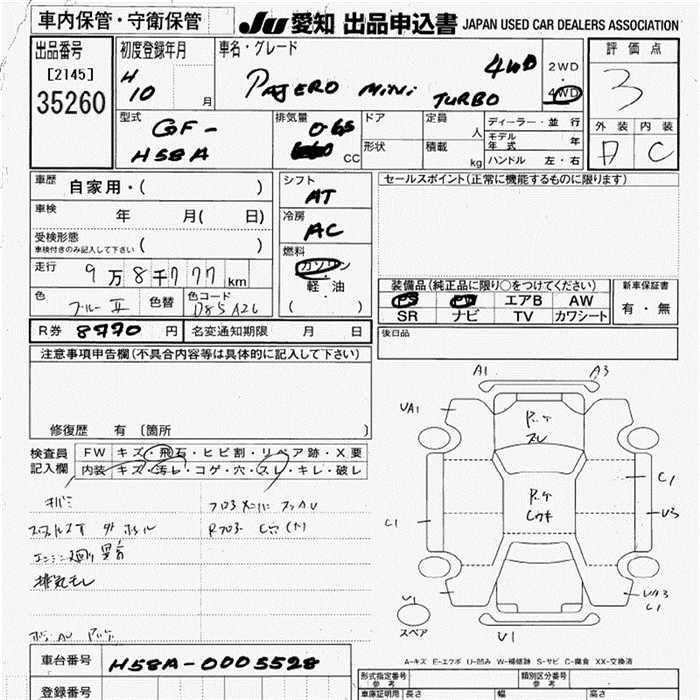 車内保管・守衛保管
JU 愛知 出品申込書 JAPAN USED CAR DEALERS ASSOCIATION
出品番号
[2145]
35260
初度登録年月
H
10
月
車名・グレード
PAJERO MINi TURBO 4WD
2WD
・
4WD
評価点
3
外装 内装
A C
型式
GF-
H58A
排気量
0.65
CC
ドア
形状
定員
人
積載
kg
ディーラー・並行
モデル年式 年
ハンドル 左・右
車歴 自家用・( )
車検 年 月( 日)
受検形態
車検付きのみ記入して下さい ( )
走行 9万8千777 km
色 ブルーII 色替 色コード
R券 8770 円 名変通知期限 月 日
シフト
AT
冷房
AC
燃料
ガソリン
軽・油
( )
セールスポイント(正常に機能するものに限ります)
装備品(純正品に限り○をつけてください)
PS PW エアB AW
SR ナビ TV カワシート
新車保証書
有・無
後日品
注意事項申告欄(不具合内容等は具体的に記入して下さい)
修復歴 有 〔箇所 〕
検査員
記入欄
FW キズ・飛石・ヒビ割・リペア跡・X要
内装 キズ・汚レ・コゲ・穴・スレ・キレ・破レ
エンジン廻り異音
排気モレ
A1
A3
UA1
C1
C1
U3
UA3
C1
U1
U1
スペア
A-キズ E-エクボ U-凹み W-補修跡 S-サビ C-腐食 XX-交換済
車台番号 H58A-0005528
登録番号
型式指定番号
参考
類別区分番号
参考
車庫証明用 長さ 幅 高さ